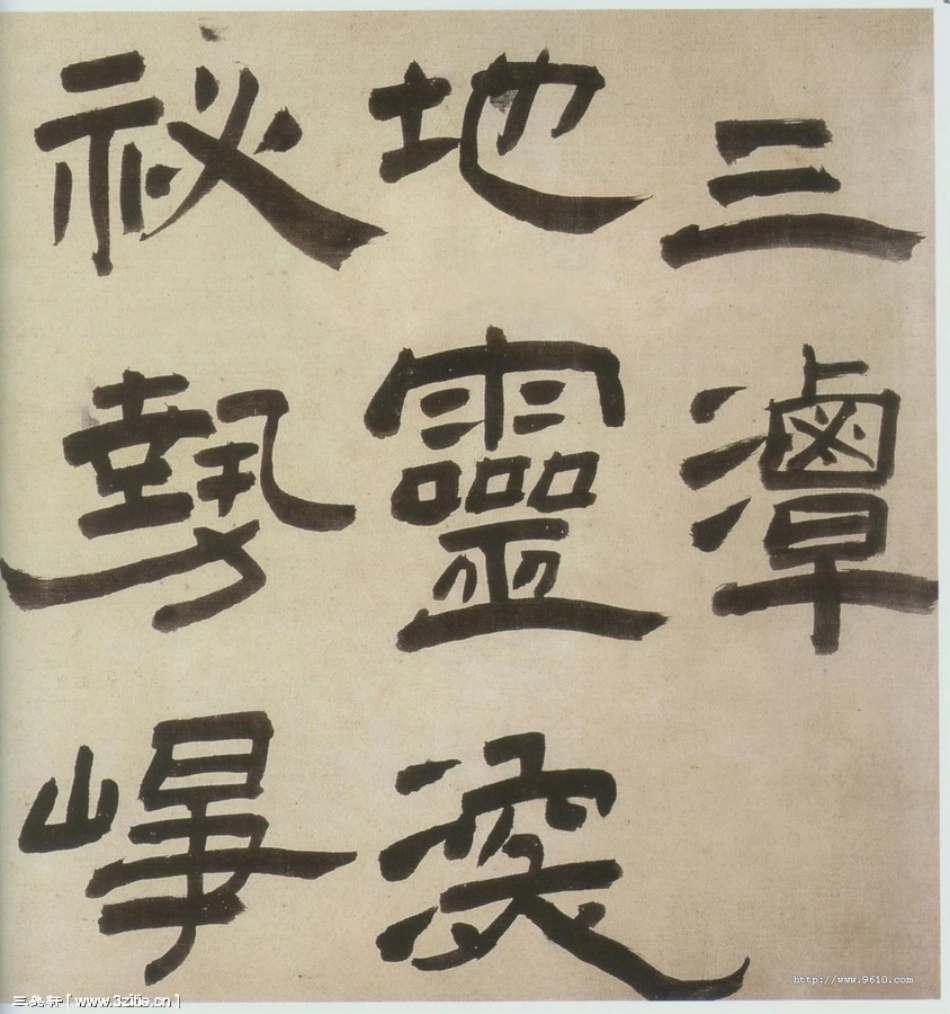 三潭
地靈
祕勢崢
http://www.9610.com
三兆軒[www.3zitie.cn]